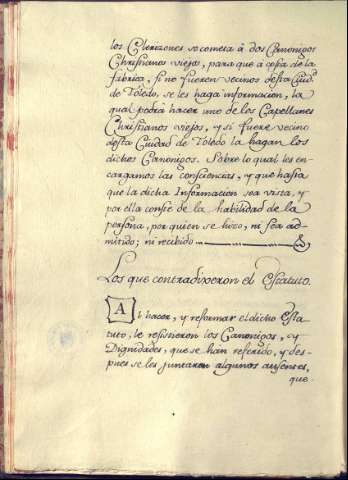 los Clerizones se cometa à dos Canonigos
Christianos viejos, para que à costa de la
fabrica, si no fueren vecinos desta Ciud.
de Toledo, se les haga informacion, la
qual podrà hacer uno de los Capellanes
Christianos viejos, y si fuere vecino
desta Ciudad de Toledo la hagan los
dichos Canonigos. Sobre lo qual les en-
cargamos las consciencias, y que hasta
que la dicha Informacion sea vista, y
por ella conste de la habilidad de la
persona, por quien se hizo, ni sea ad-
mitido; ni recibido
Los que contradixeron el Estatuto.
Al hacer, y reformar el dicho Esta-
tuto, le resistieron los Canonigos, y
Dignidades, que se han referido, y des-
pues se les juntaron algunos ausentes,
que-